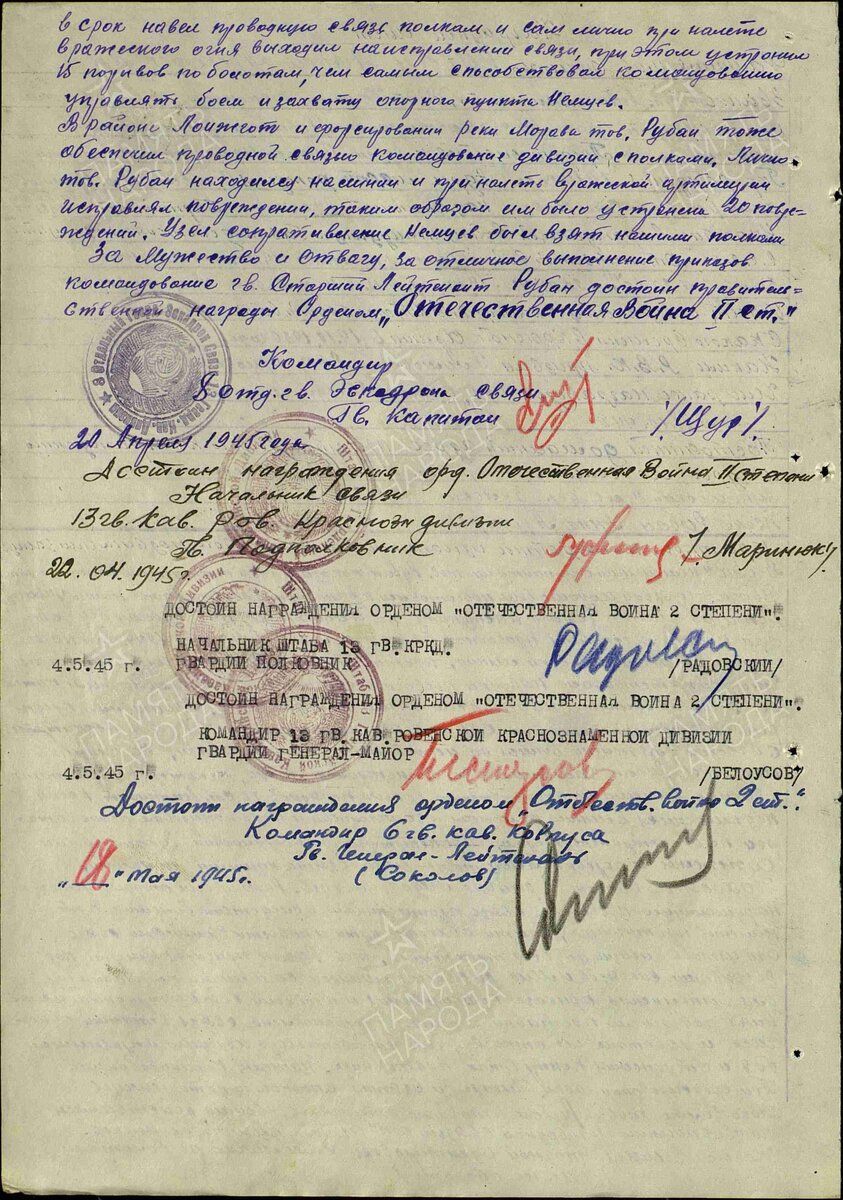 в срок навел проводную связь полкам и сам лично при налете
вражеского огня выходил на исправлении связи, при этом устронил
15 порывов по болотам, чем самым способствовал командованию
управлять боем и захвату опорного пункта Немцев.
В районе и форсировании реки Морава тов. Рубан тоже
обеспечил проводной связью командование дивизии с полками. Лично
тов. Рубан находился на линии и при налете вражеской артилерии
исправлял повреждении, таким образом им было устранена 20 повре-
ждений. Узел сопративление Немцев был взят нашими полками
За Мужество и Отвагу, за отличное выполнение приказов
командование гв. Старший Лейтенант Рубан достоин правител-
ственной награды Орденом „Отечественная Война II ст."
Командир
8 отд. гв. Эскадрона связи
Гв. капитан /Щур/
20 Апреля 1945 года
Достоин награждения орд. Отечественная Война II степени
Начальник связи
13 гв. кав. Ров. Красноз дивизии
Гв. Подполковник /Маринюк/
22.04.1945г.
ДОСТОИН НАГРАЖДЕНИЯ ОРДЕНОМ "ОТЕЧЕСТВЕННАЯ ВОИНА 2 СТЕПЕНИ".
НАЧАЛЬНИК ШТАБА 13 ГВ.КРКД.
4.5.45 г. ГВАРДИИ ПОЛКОВНИК /РАДОВСКИЙ/
ДОСТОИН НАГРАЖДЕНИЯ ОРДЕНОМ "ОТЕЧЕСТВЕННАЯ ВОИНА 2 СТЕПЕНИ".
КОМАНДИР 13 ГВ.КАВ.РОВЕНСКОЙ КРАСНОЗНАМЕННОЙ ДИВИЗИИ
ГВАРДИИ ГЕНЕРАЛ-МАЙОР
4.5.45 г. /БЕЛОУСОВ/
Достоин награждения орденом „Отечеств. война 2 ст."
Командир 6 гв. кав. Корпуса
Гв. Генерал-Лейтенант
„18" мая 1945г. (Соколов)
ПАМЯТЬ
НАРОДА